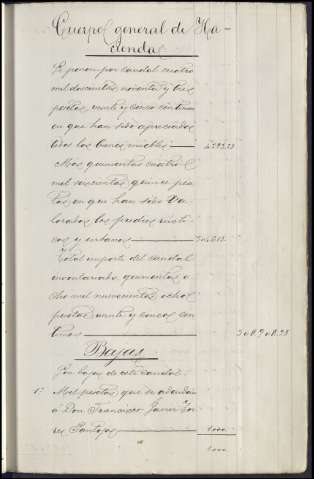 Cuerpo general de Ha-
cienda
Se ponen por caudal cuatro
mil doscientas noventa y tres
pesetas, veinte y cinco centimos
en que han sido apreciados
todos los bienes muebles 4.293,25
Mas quinientas cuatro
mil seiscientas quince pese
tas en que han sido va
lorados los predios rusti
cos y urbanos 504.615.
Total importe del caudal
inventariado, quinientas o
cho mil novecientas ocho
pesetas veinte y cinco cen
timos 508.908.25
Bajas.
Son bajas de este caudal:
1º Mil pesetas que se adeudan
á Don Francisco Javier
Santojos 1000
1000